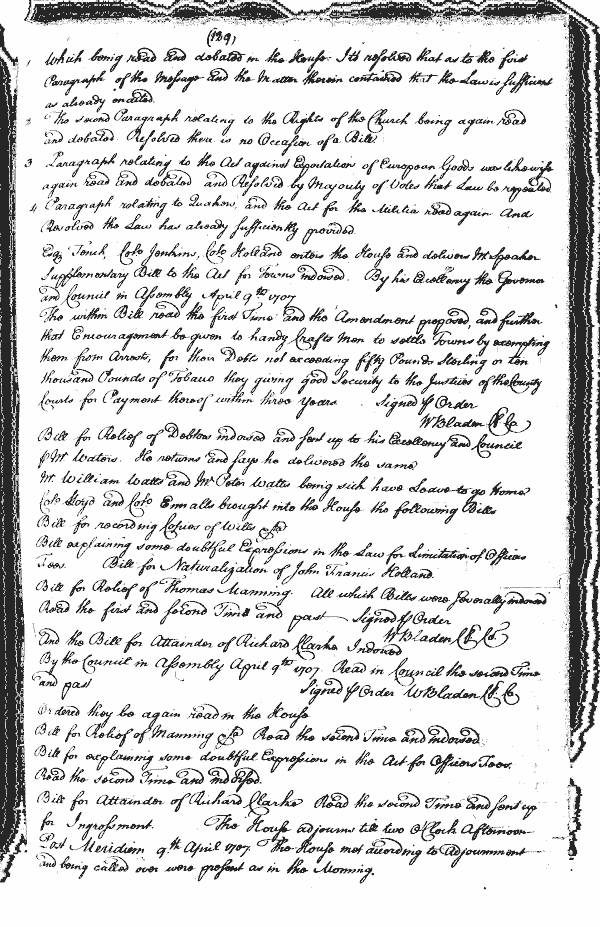 (139)
1 which being read and debated in the House. It's resolved that as to the first
Paragraph of the Message and the Matter therein contained that the Law is sufficient
as already enacted.
2 The second Paragraph relating to the Rights of the Church being again read
and debated. Resolved there is no Occasion of a Bill.
3 Paragraph relating to the Act against Exportation of European Goods was likewise
again read and debated and Resolved by Majority of Votes that Law be repealed
4 Paragraph relating to Quakers, and the Act for the Militia read again And
Resolved the Law has already sufficiently provided.
Esqr Tench, Colo Jenkins, Colo Holland enters the House and delivers Mr Speaker
Supplementary Bill to the Act for Towns indorsed. By his Excellency the Governor
and Council in Assembly April 9th 1707
The within Bill read the first Time and the Amendment proposed, and further
that Encouragement be given to handy Crafts Men to settle Towns by exempting
them from Arrests, for their Debts not exceeding fifty Pounds Sterling or ten
thousand Pounds of Tobacco they giving good Security to the Justices of the County
Courts for Payment thereof within three Years. Signed p Order
W Bladen Cl. Co
Bill for Relief of Debtors indorsed and sent up to his Excellency and Council
p Mr Waters. He returns and says he delivered the same
Mr. William Watts and Mr Peter Watts being sick have Leave to go Home
Colo Lloyd and Colo Ennalls brought into the House the following Bills
Bill for recording Copies of Wills &ca
Bill explaining some doubtful Expressions in the Law for Limitation of Officers
Fees. Bill for Naturalization of John Francis Holland.
Bill for Relief of Thomas Manning. All which Bills were severally indorsed
Read the first and second Time and past Signed p Order
W Bladen Cl. Co.
And the Bill for Attainder of Richard Clarke Indorsed
By the Council in Assembly April 9th 1707. Read in Council the second Time
and past Signed p Order W Bladen Cl. Co
Ordered they be again read in the House
Bill for Relief of Manning &ca Read the second Time and indorsed.
Bill for explaining some doubtful Expressions in the Act for Officers Fees.
Read the second Time and indorsed.
Bill for Attainder of Richard Clarke Read the second Time and sent up
for Ingrossment. The House adjourns till two O'Clock Afternoon
Post Meridiem 9th April 1707. The House met according to Adjournment
and being called over were present as in the Morning.